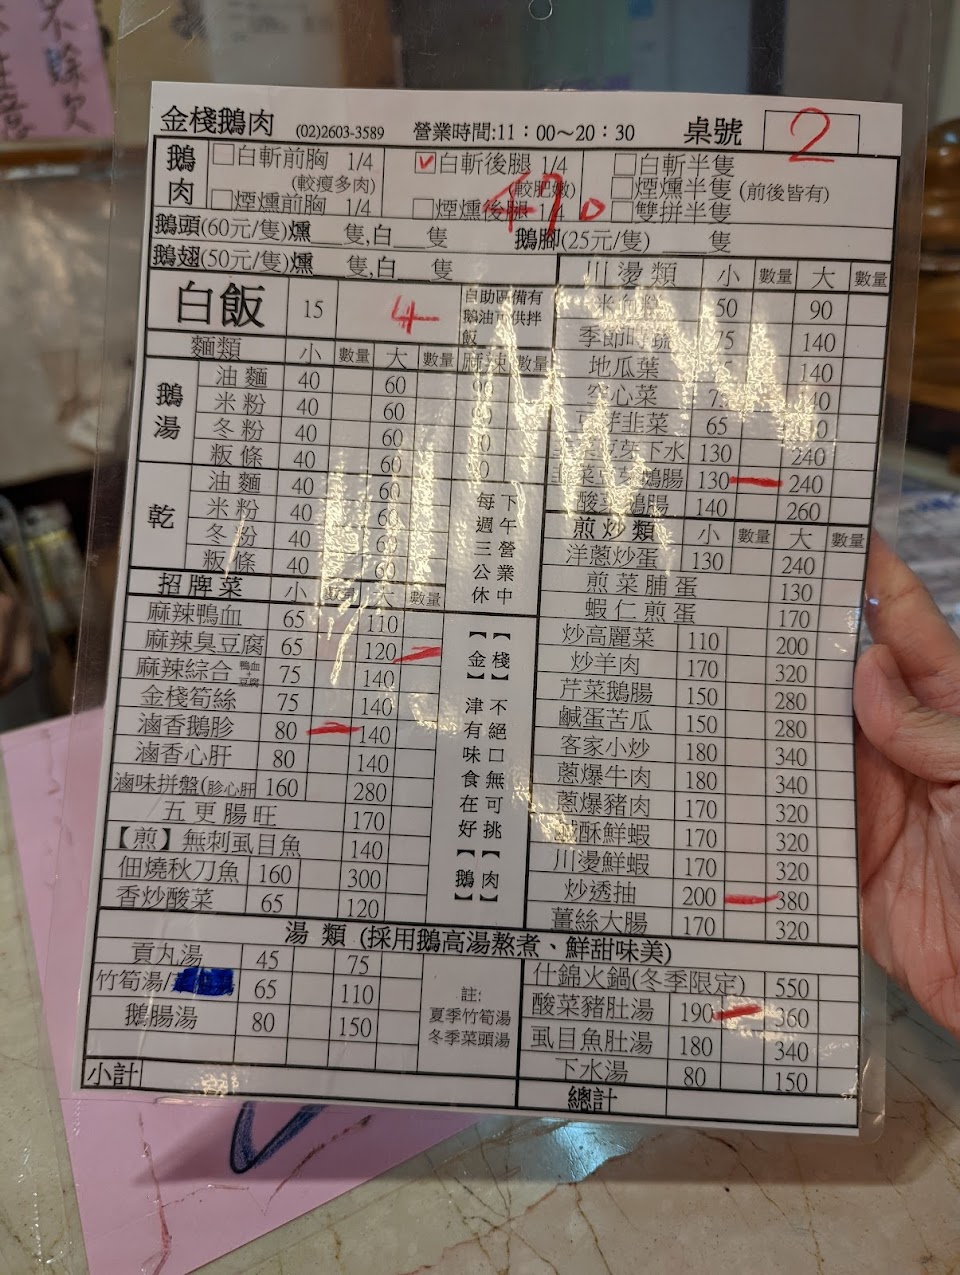 不除欠
金棧鵝肉 (02)2603-3589 營業時間:11：00～20：30 桌號 2
鵝肉
白斬前胸 1/4 白斬後腿 1/4 白斬半隻
(較瘦多肉) (較肥嫩) 煙燻半隻 (前後皆有)
煙燻前胸 1/4 煙燻後腿 1/4 雙拼半隻
470
鵝頭(60元/隻)燻___隻,白___隻 鵝腳(25元/隻)____隻
鵝翅(50元/隻)燻___隻,白___隻
白飯 15 4
自助區備有
鵝油可供拌
飯
麵類 小 數量 大 數量 麻辣 數量
鵝湯
油麵 40 60 90
米粉 40 60
冬粉 40 60
粄條 40 60
乾
油麵 40 60
米粉 40 60
冬粉 40 60
粄條 40 60
下午營業中
每週三公休
招牌菜 小 數量 大 數量
麻辣鴨血 65 110
麻辣臭豆腐 65 120 一
麻辣綜合 鴨血+豆腐 75 140
金棧筍絲 75 140
滷香鵝胗 80 一 140
滷香心肝 80 140
滷味拼盤(胗心肝 160 280
五更腸旺 170
【煎】無刺虱目魚 140
佃燒秋刀魚 160 300
香炒酸菜 65 120
【棧】不絕口無可挑【肉】
【金】津有味食在好【鵝】
川燙類 小 數量 大 數量
米血 50 90
季節時蔬 75 140
地瓜葉 140
空心菜 140
豆芽韭菜 65
下水 130 240
鵝腸 130 一 240
酸菜鵝腸 140 260
煎炒類 小 數量 大 數量
洋蔥炒蛋 130 240
煎菜脯蛋 130
蝦仁煎蛋 170
炒高麗菜 110 200
炒羊肉 170 320
芹菜鵝腸 150 280
鹹蛋苦瓜 150 280
客家小炒 180 340
蔥爆牛肉 180 340
蔥爆豬肉 170 320
鹹酥鮮蝦 170 320
川燙鮮蝦 170 320
炒透抽 200 一 380
薑絲大腸 170 320
湯 類 (採用鵝高湯熬煮、鮮甜味美)
貢丸湯 45 75
竹筍湯/ 65 110
鵝腸湯 80 150
註:
夏季竹筍湯
冬季菜頭湯
什錦火鍋(冬季限定) 550
酸菜豬肚湯 190 一 360
虱目魚肚湯 180 340
下水湯 80 150
小計
總計